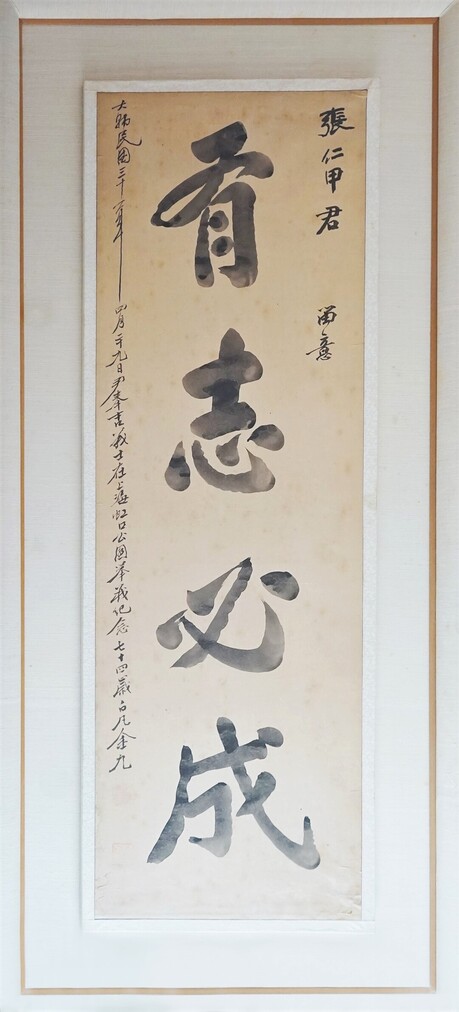 張仁甲君 留意
有志必成
大韓民國三十一年 四月二十九日尹奉吉義士在上海虹口公園擧義紀念 七十四歲白凡金九